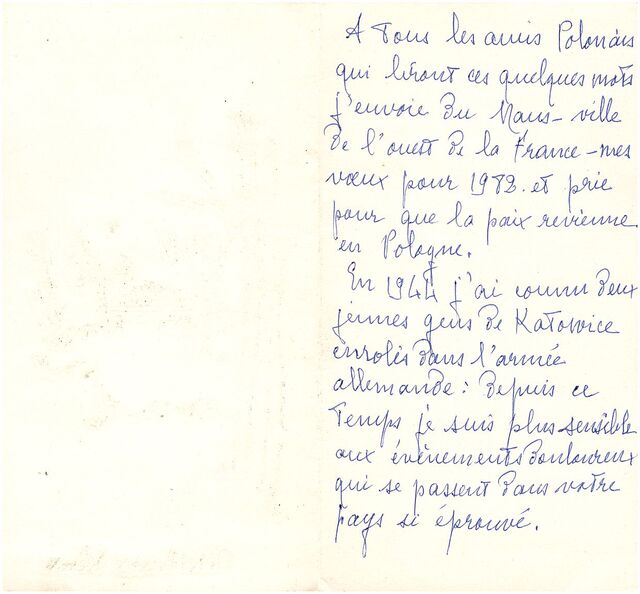 A Tous les amis Polonais
qui liront ces quelques mots
j'envoie du Mans - ville
de l'ouest de la France - mes
vœux pour 1982. et prie
pour que la paix revienne
en Pologne.
En 1944 j'ai connu deux
jeunes gens de Katowice
enrolés dans l'armée
allemande : depuis ce
Temps je suis plus sensible
aux évènements douloureux
qui se passent dans votre
pays si éprouvé.